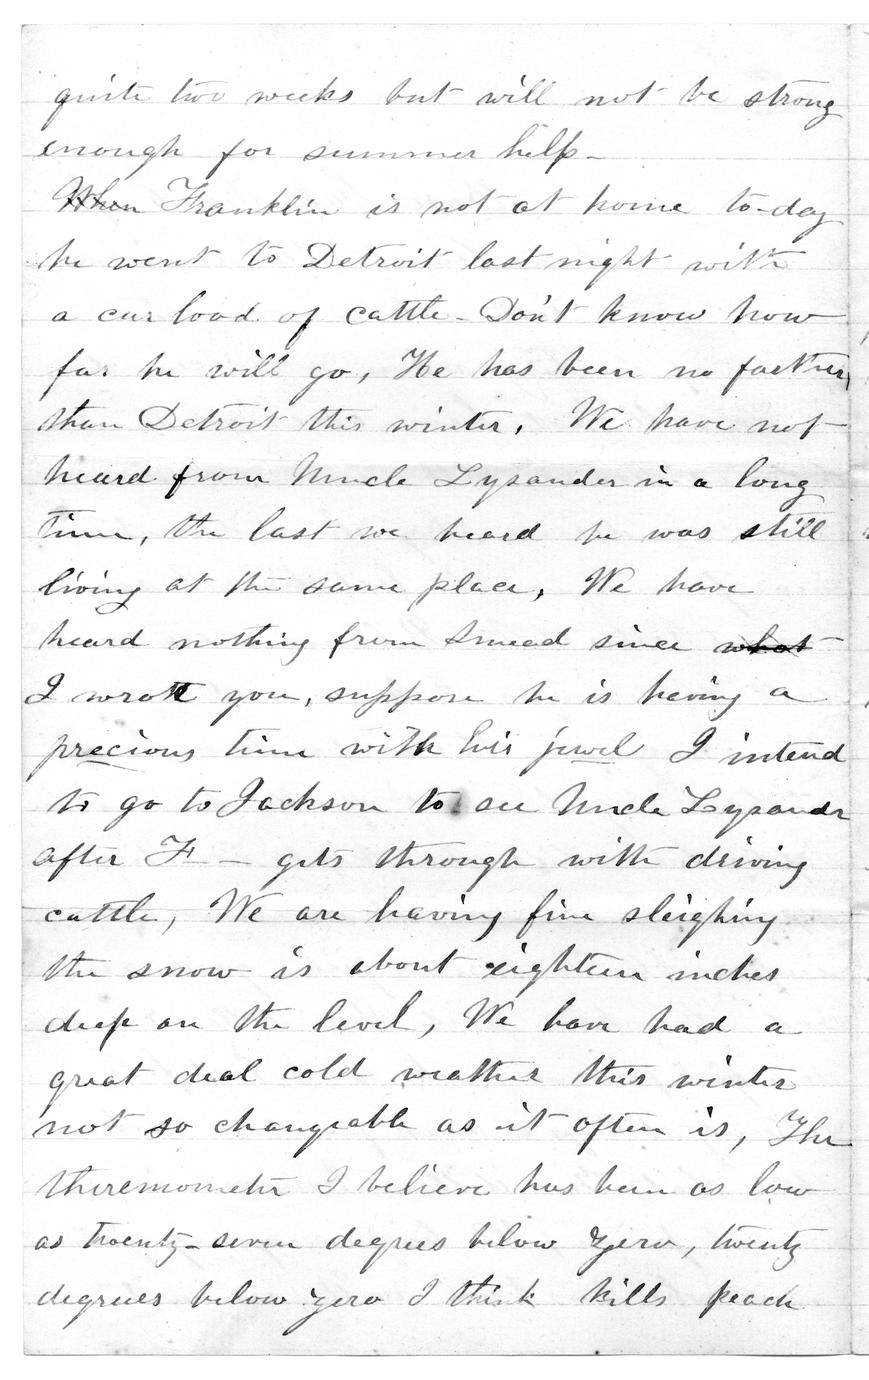 quite two weeks but will not be strong
enough for summer help-
When Franklin is not at home to-day
he went to Detroit last night with
a car load of cattle- Don't know how
far he will go, He has been no farther
than Detroit this winter, We have not
heard from Uncle Lysander in a long
time, the last we heard he was still
living at the same place, We have
heard nothing from Smead since what
I wrote you, suppose he is having a
precious time with his jewel I intend
to go to Jackson to see Uncle Lysander
after F- gets through with driving
cattle, We are having fine sleighing
the snow is about eighteen inches
deep on the level, We have had a
great deal cold weather this winter
not so changeable as it often is, The
theremometer I believe has been as low
as twenty-seven degrees below zero, twenty
degrees below zero I think kills peach